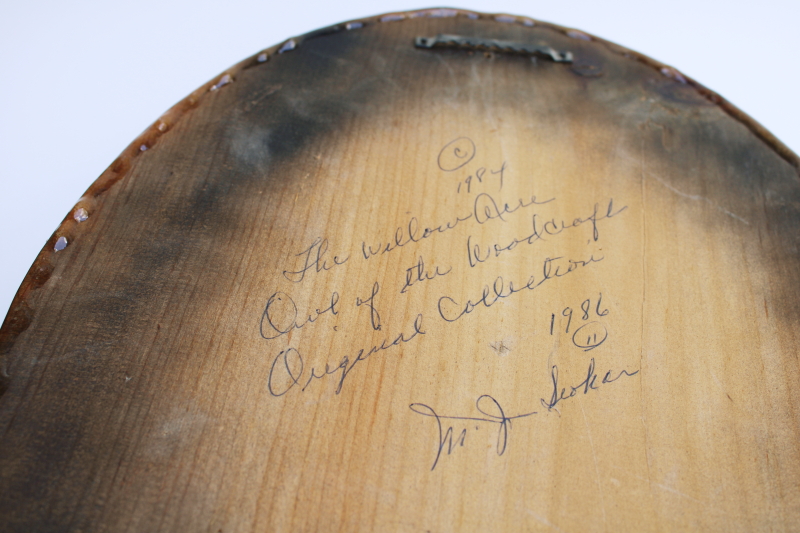 ©
1984
The Willow Acre
Owl of the Woodcraft
Original Collection
1986
11
M. J.